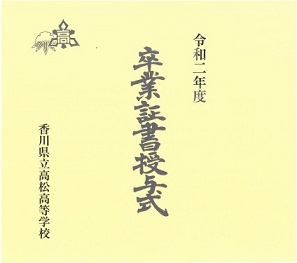 高
令和二年度
卒業証書授与式
香川県立高松高等学校